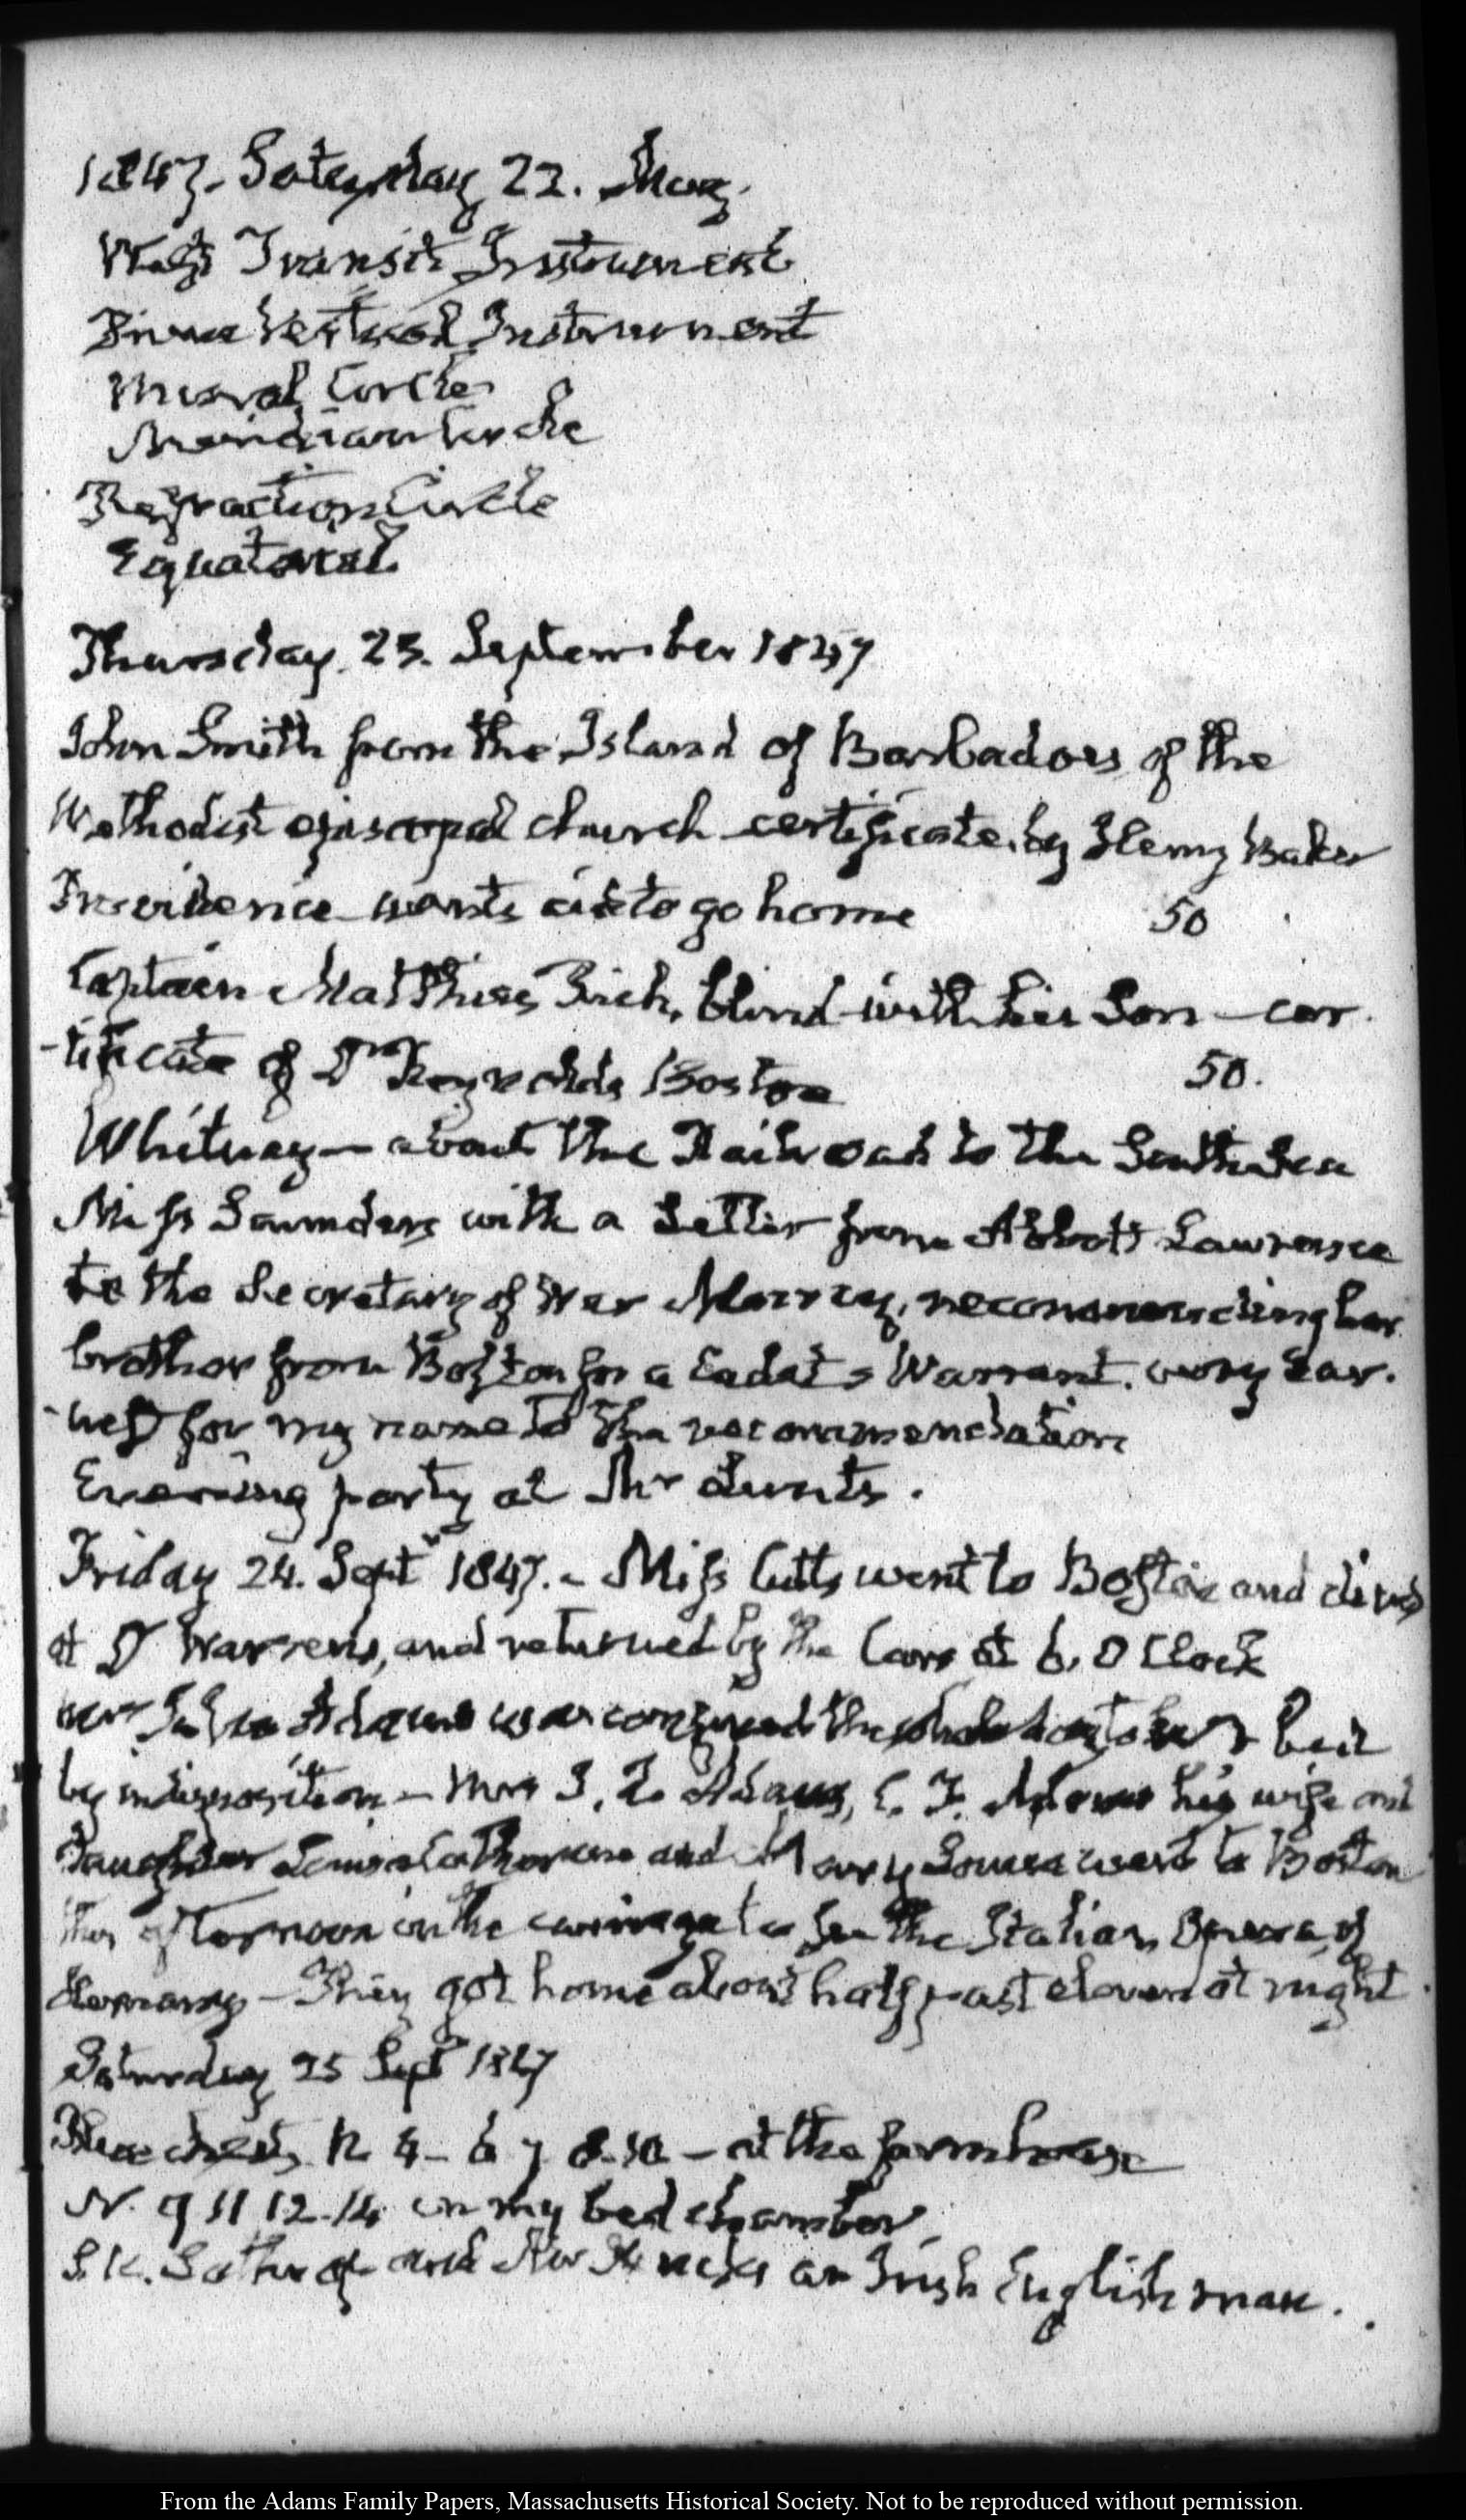 1847. Saturday 22. May.
West Transit Instrument
Prime Vertical Instrument
Mural Circle
Meridian Circle
Refraction Circle
Equatorial.
Thursday. 23. September 1847
John Smith from the Island of Barbadoes of the
Methodist episcopal church certificate by Henry Baker
Providence wants aid to go home 50
Captain Matthias Rich, blind with his Son – cer-
-tificate of Dr Reynolds Boston 50.
Whitney – about the Railroad to the South Sea
Miss Saunders with a Letter from Abbott Lawrence
to the Secretary of War Marcy, recommending her
brother from Boston for a Cadet's Warrant. very ear-
-nest for my name to the recommendation
Evening party at Mr Lunt's.
Friday 24. Septr 1847. – Miss Cutts went to Boston and dined
at Dr Warren's, and returned by the Cars at 6. O Clock
Mrs John Adams was confined the whole day to her bed
by indisposition – Mrs J. Q. Adams, C. F. Adams his wife and
daughter Louisa Catherine and Mary Louisa went to Boston
this afternoon in the carriage to see the Italian Opera of
– They got home about half past eleven at night
Saturday 25 Septr 1847
chests N 4 – 6 7 8. 10 – at the farmhouse
N. 9 11 12. 14 in my bed chamber.
S. K. Lothrop and Mr an Irish Englishman.
From the Adams Family Papers, Massachusetts Historical Society. Not to be reproduced without permission.